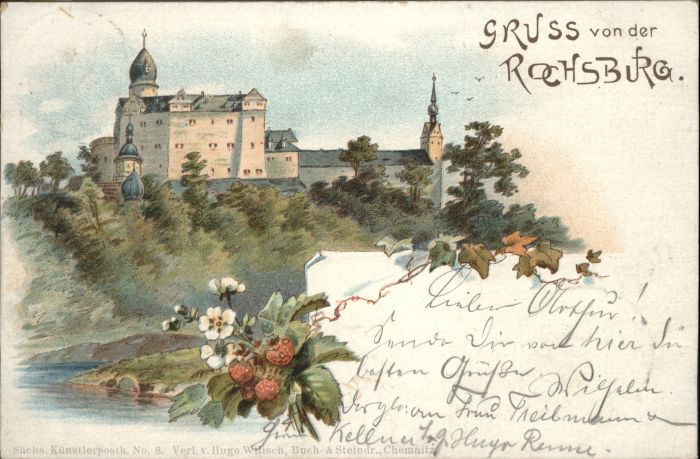 GRUSS von der
ROCHSBURG.
Lieber Arthur!
Sende Dir von hier die
besten Grüße Wilhelm.
Frau Treibmann u
Kellner Hugo Renne.
Sächs. Künstlerpostk. No. 8. Verl. v. Hugo Wilisch, Buch- & Steindr., Chemnitz